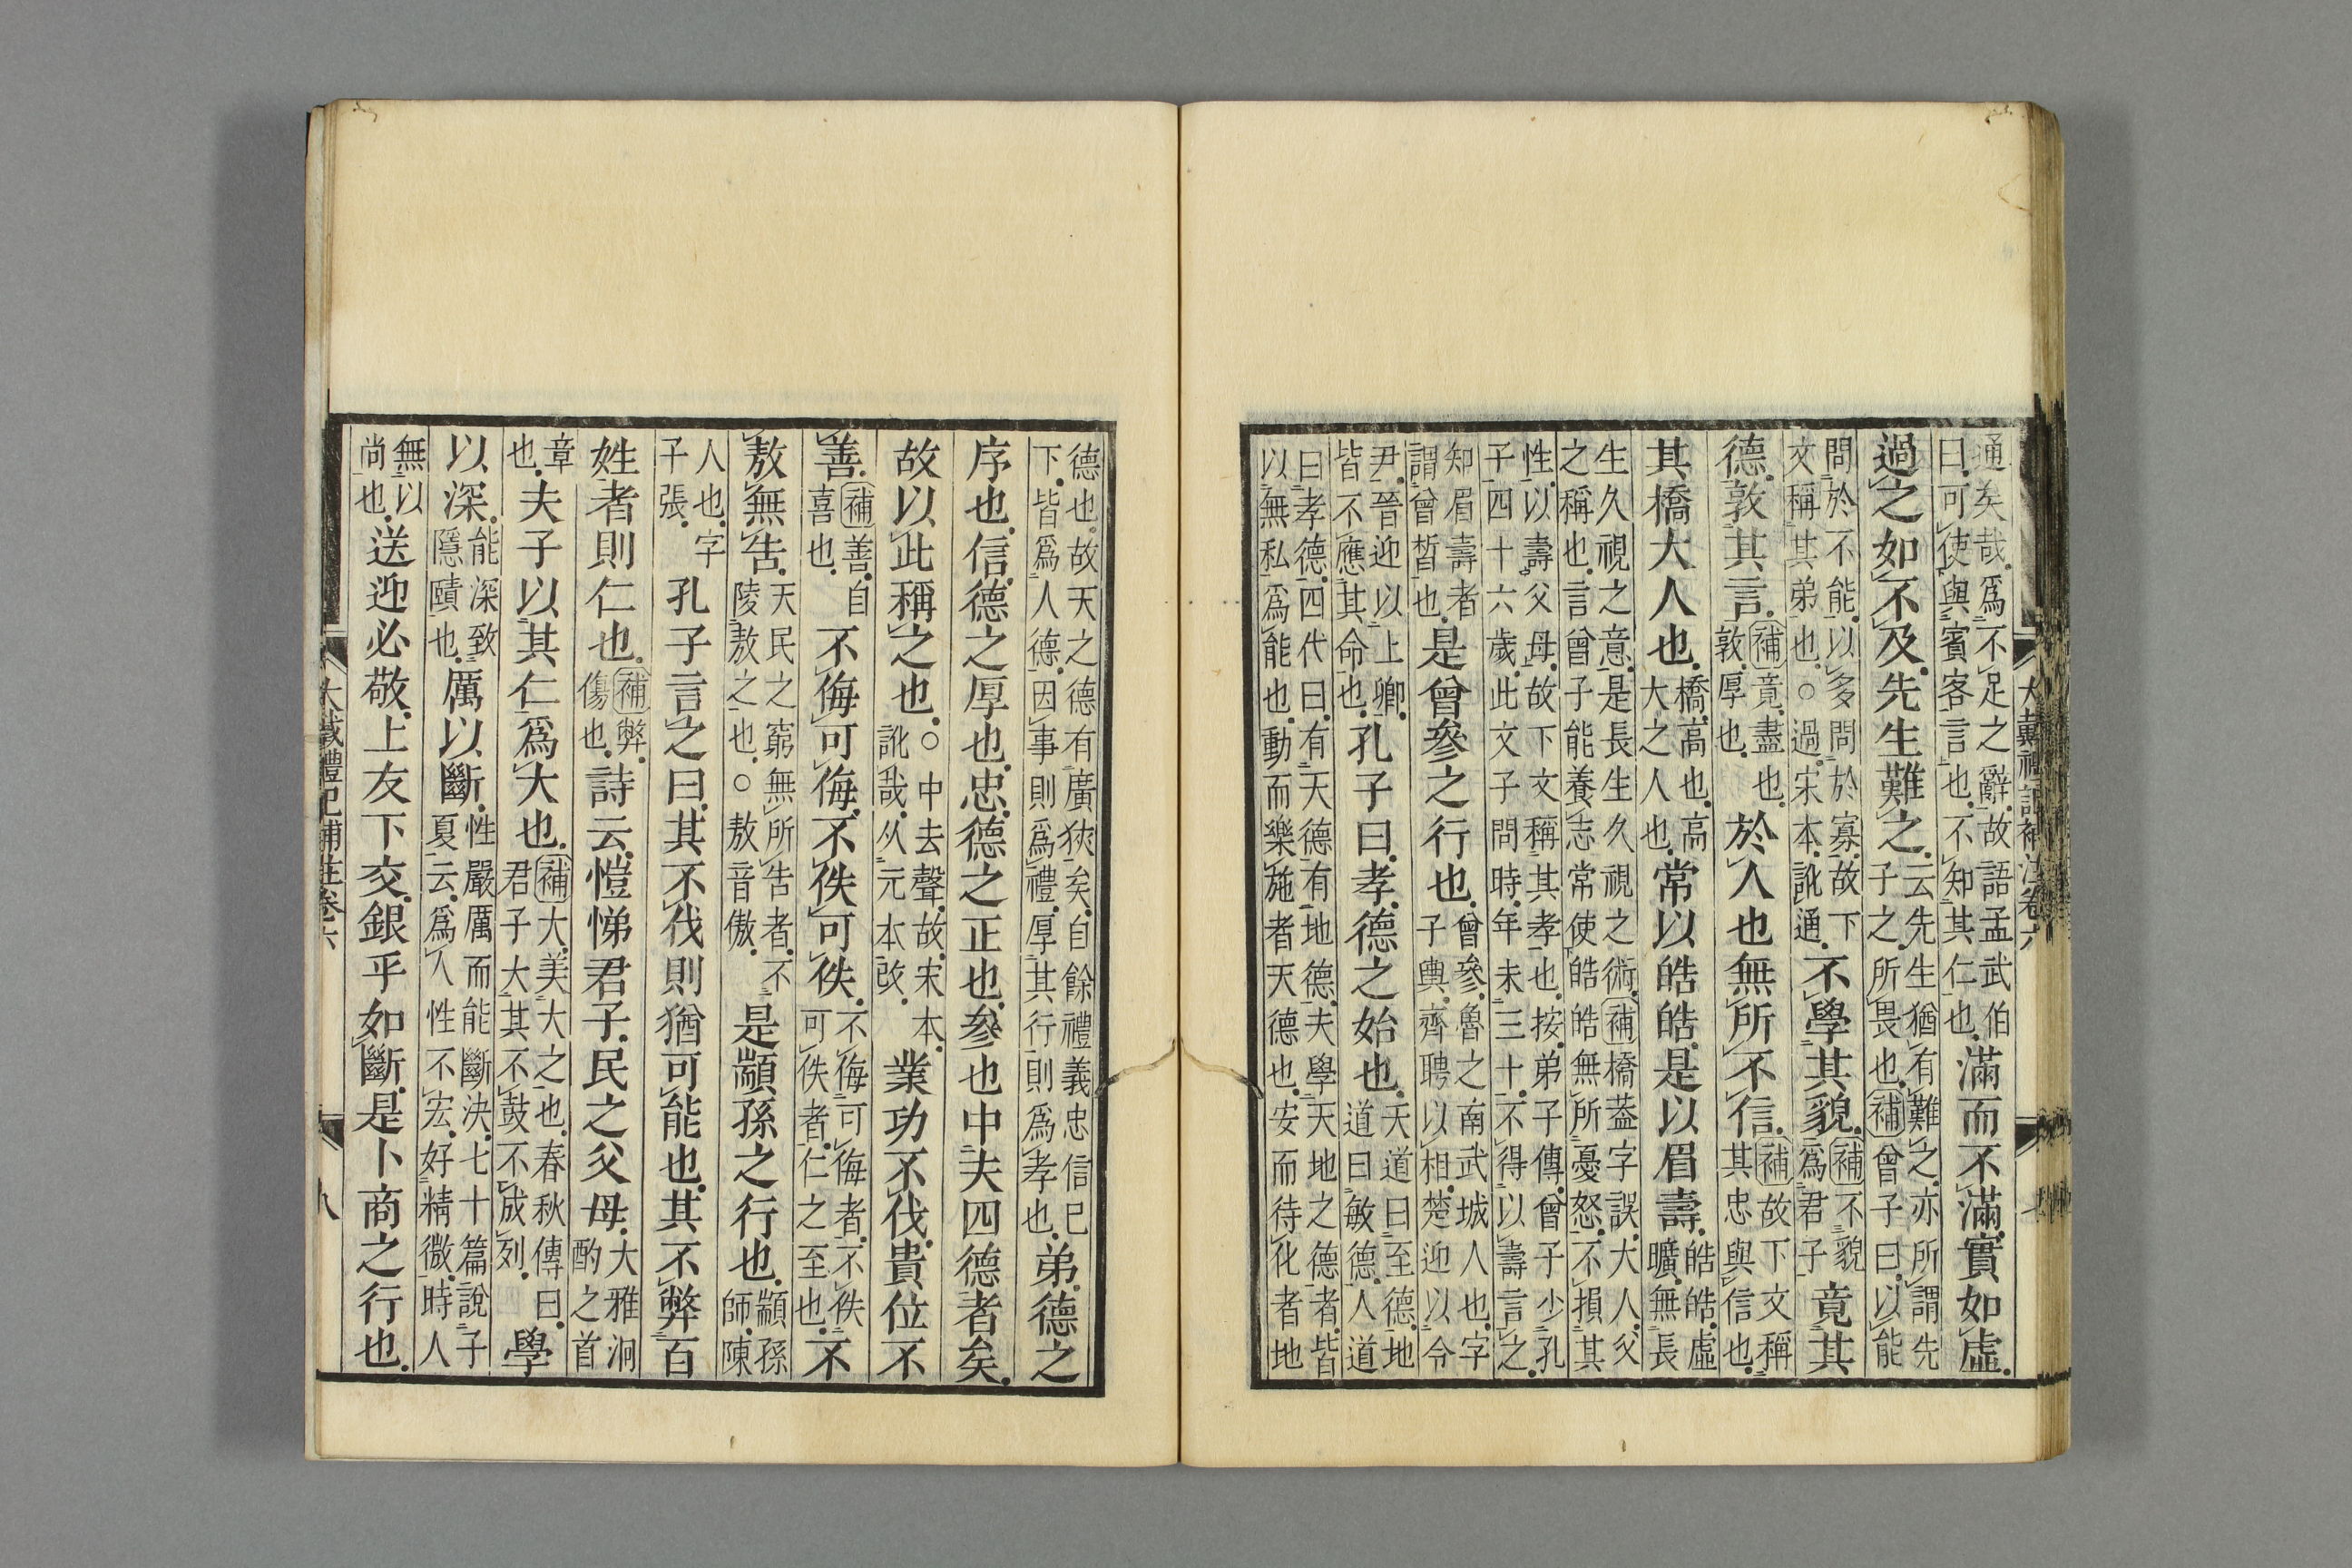 大戴禮記補注卷六　七
通矣哉爲不足之辭故語孟武伯
曰可使與賓客言也不知其仁也
滿而不滿實如虛
過之如不及先生難之
云先生猶有難之亦所謂先
子之所畏也補曾子曰以能
問於不能以多問於寡故下
文稱其弟也○過宋本訛通
不學其貌
補不貌
爲君子
竟其
德敦其言
補竟盡也
敦厚也
於人也無所不信
補故下文稱
其忠與信也
其橋大人也
橋高也高
大之人也
常以皓皓是以眉壽
皓皓虛
曠無長
生久視之意是長生久視之術補橋葢字誤大人父
之稱也言曾子能養志常使皓皓無所憂怒不損其
性以壽父母故下文稱其孝也按弟子傳曾子少孔
子四十六歲此文子問時年未三十不得以壽言之
知眉壽者
謂曾晳也
是曾參之行也
曾參魯之南武城人也字
子輿齊聘以相楚迎以令
尹晉迎以上卿
皆不應其命也
孔子曰孝德之始也
天道曰至德地
道曰敏德人道
曰孝德四代曰有天德有地德夫學天地之德者皆
以無私爲能也動而樂施者天德也安而待化者地
德也故天之德有廣狹矣自餘禮義忠信已
下皆爲人德因事則爲禮厚其行則爲孝也
弟德之
序也信德之厚也忠德之正也參也中夫四德者矣
故以此稱之也
○中去聲故宋本
訛哉从元本改
業功不伐貴位不
善
補善自
喜也
不侮可侮不佚可佚
不侮可侮者不佚
可佚者仁之至也
不
敖無告
天民之窮無所告者不
陵敖之也○敖音傲
是顓孫之行也
顓孫
師陳
人也字
子張
孔子言之曰其不伐則猶可能也其不弊百
姓者則仁也
補弊
傷也
詩云愷悌君子民之父母
大雅泂
酌之首
章
也
夫子以其仁爲大也
補大美大之也春秋傳曰
君子大其不鼓不成列
學
以深
能深致
隱賾也
厲以斷
性嚴厲而能斷決七十篇說子
夏云爲人性不宏好精微時人
無以
尚也
送迎必敬上友下交銀乎如斷是卜商之行也
大戴禮記補注卷六　八